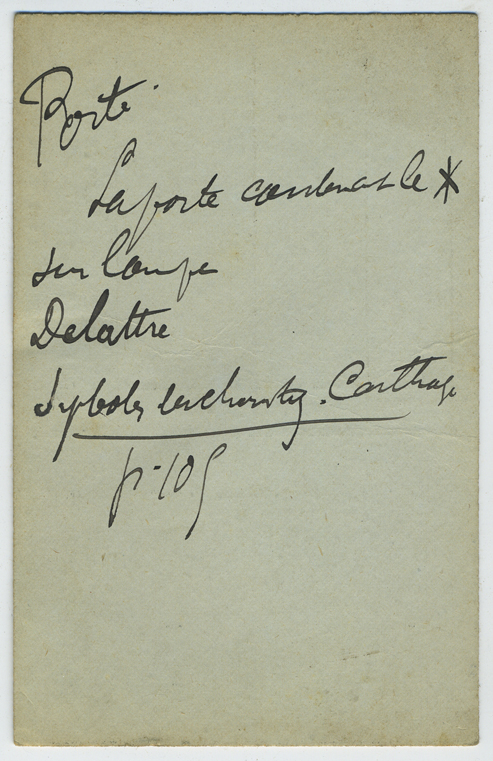 Porte.
La porte contenant le ⳩
sur lampe
Delattre
Symboles eucharistiq. Carthage
p. 105